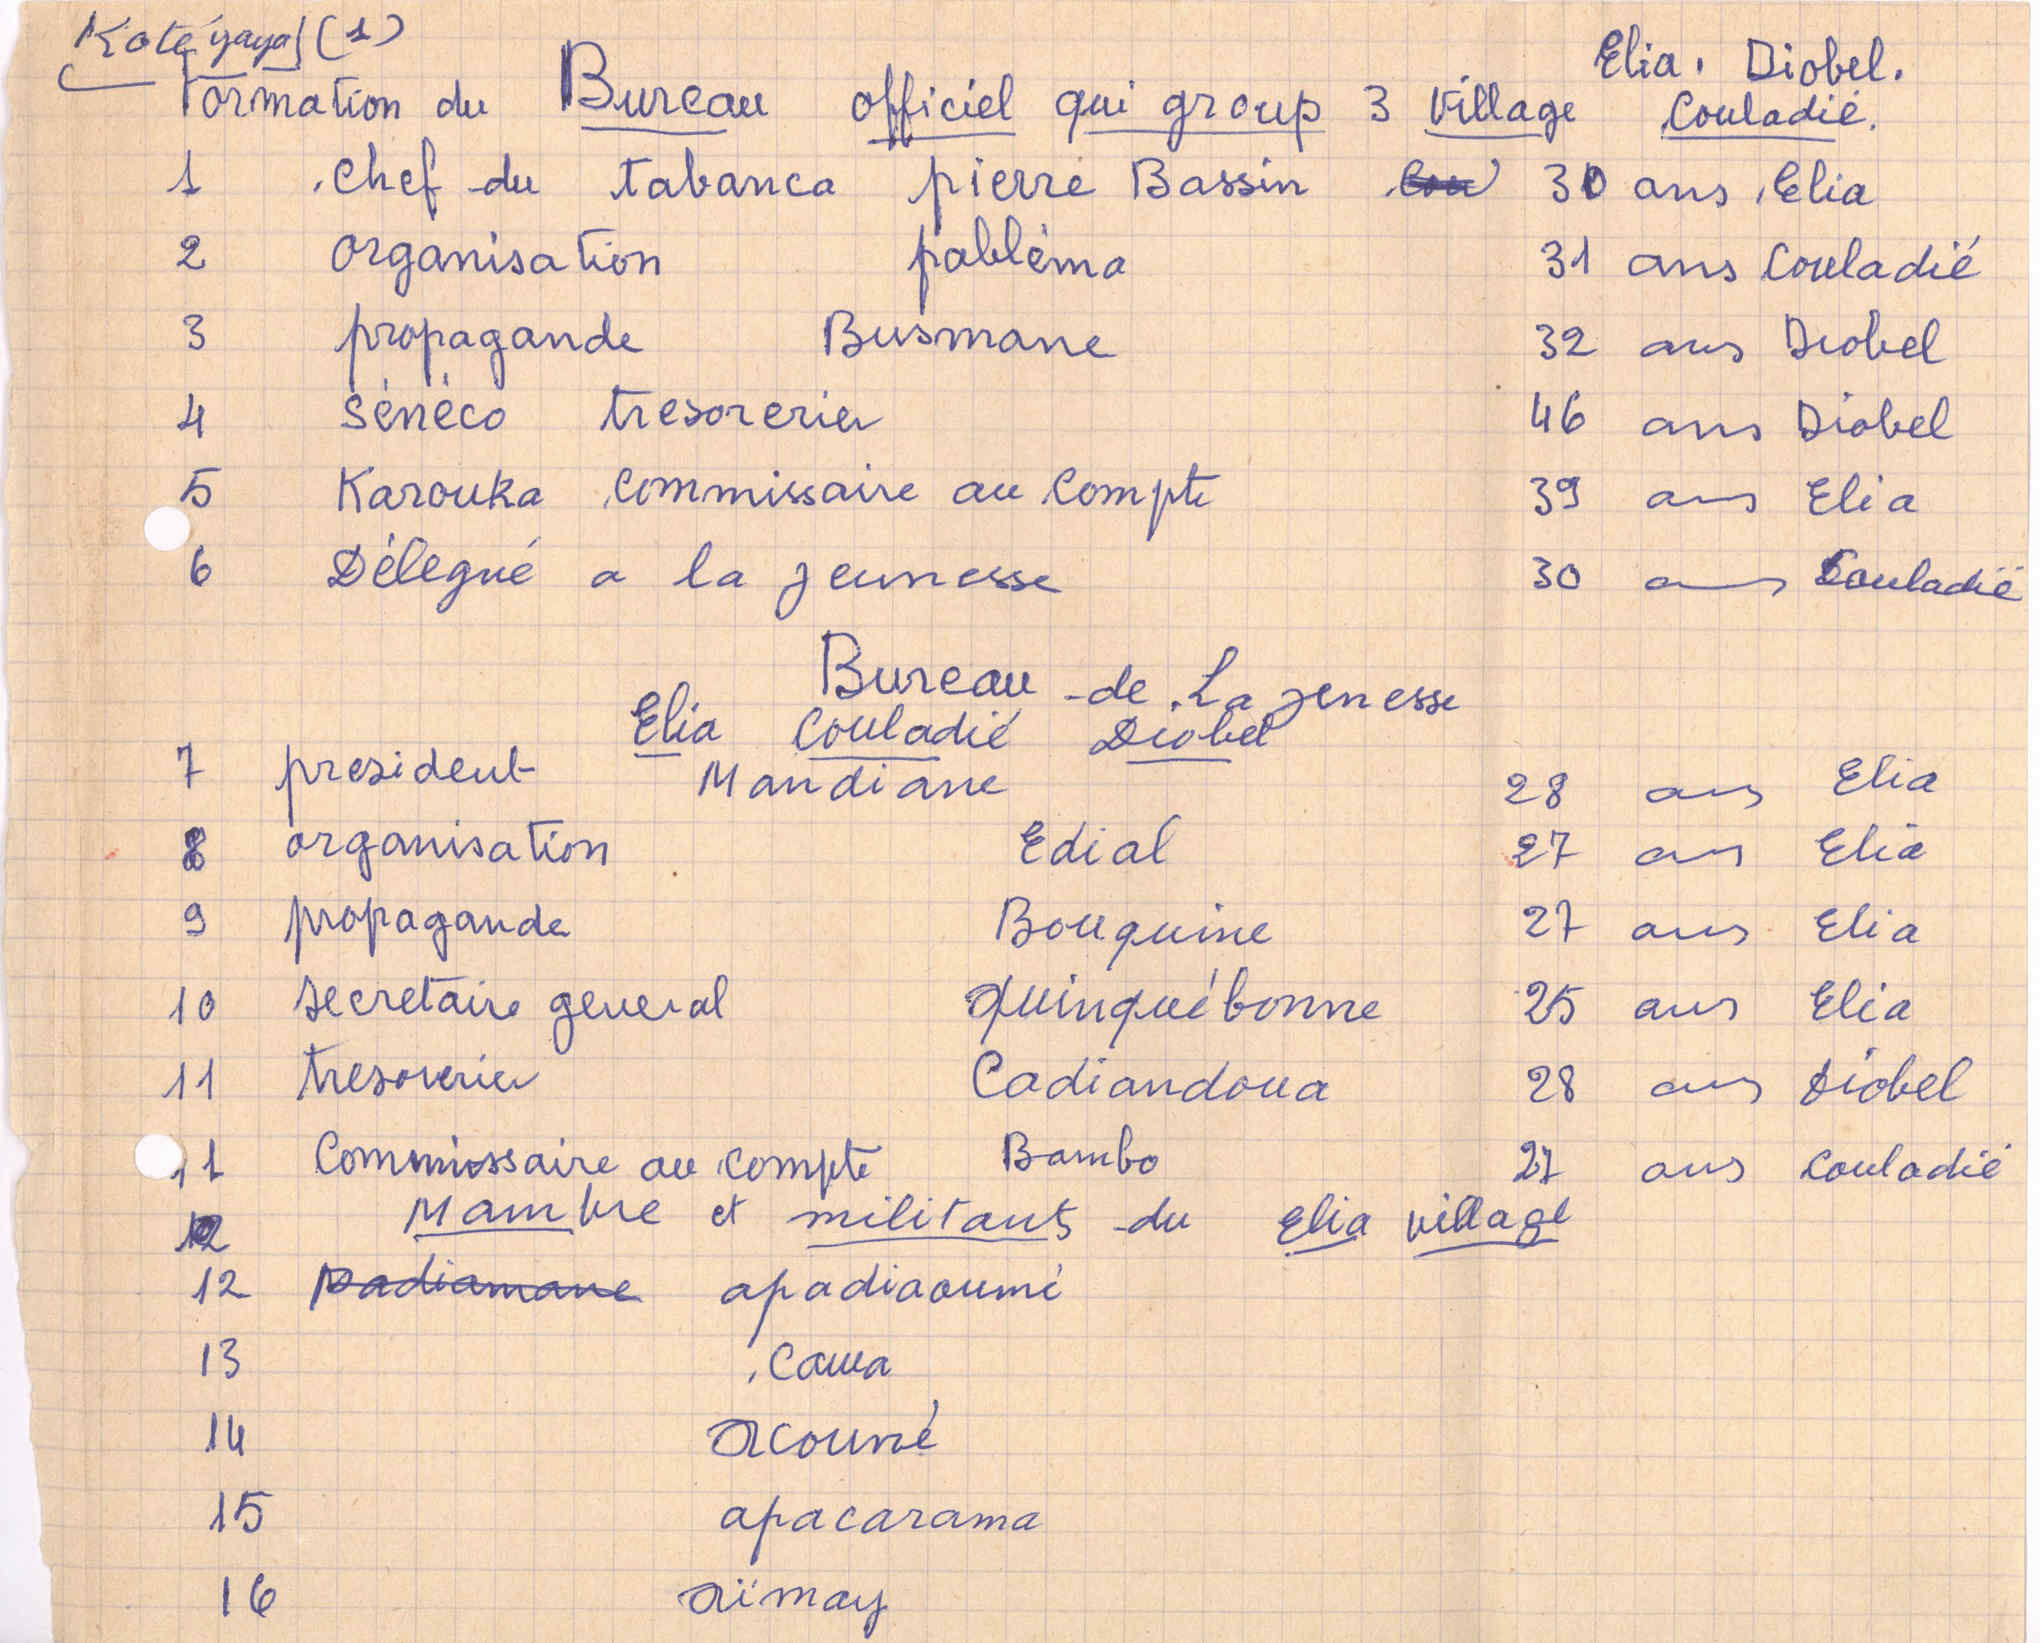 Koté yaya (1)
Elia. Diobel.
Formation du Bureau officiel qui group 3 village Couladié.
1 chef du tabanca pierre Bassin 30 ans Elia
2 organisation pabléma 31 ans Couladié
3 propagande Busmane 32 ans Diobel
4 Sénéco tresorerier 46 ans Diobel
5 Karouka commissaire au compte 39 ans Elia
6 Délegué a la jeunesse 30 ans Couladié
Bureau de La jenesse
Elia Couladié Diobel
7 president Mandiane 28 ans Elia
8 organisation Edial 27 ans Elia
9 propagande Bouquine 27 ans Elia
10 secretaire general quinquébonne 25 ans Elia
11 tresorerier Cadiandoua 28 ans Diobel
11 Commissaire au compte Bambo 27 ans couladié
Mambre et militants du Elia village
12
12 padiamane apadiaoumé
13 Caua
14 acouné
15 apacarama
16 aïmay